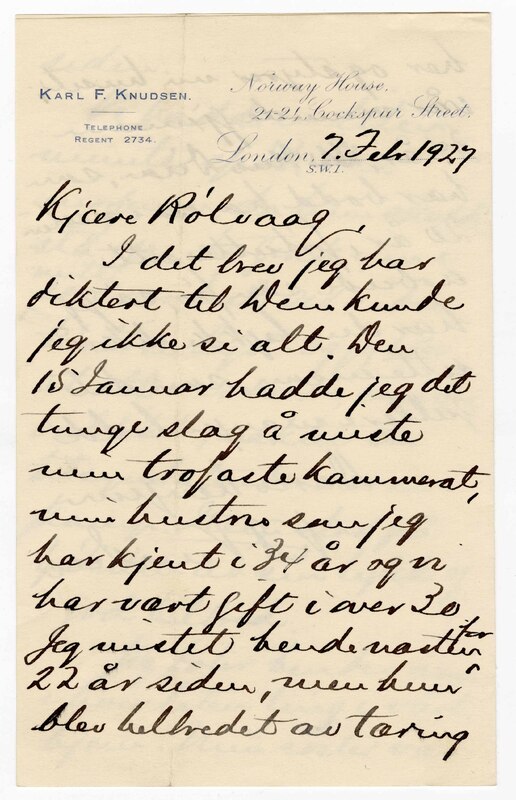 KARL F. KNUDSEN.
TELEPHONE
REGENT 2734.
Norway House,
21-24, Cockspur Street,
London, 7. Febr 1927
S.W.1.
Kjære Rölvaag,
I det brev jeg har
diktert til Dem kunde
jeg ikke si alt. Den
15 Januar hadde jeg det
tunge slag å miste
min trofaste kammerat,
min hustru som jeg
har kjent i 34 år og vi
har vært gift i over 30
Jeg mistet hende næsten for
22 år siden, men hun
blev helbredet av tæring